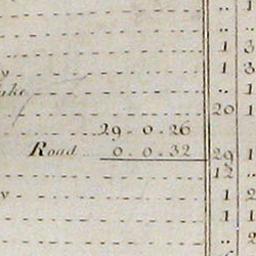 .. 1
..
1 3
y 1 3
ake .. 1
20 1
29 . 0 . 26
Road 0 . 0 . 32 29 1
12 ..
y 1 2
1 1
.. 2